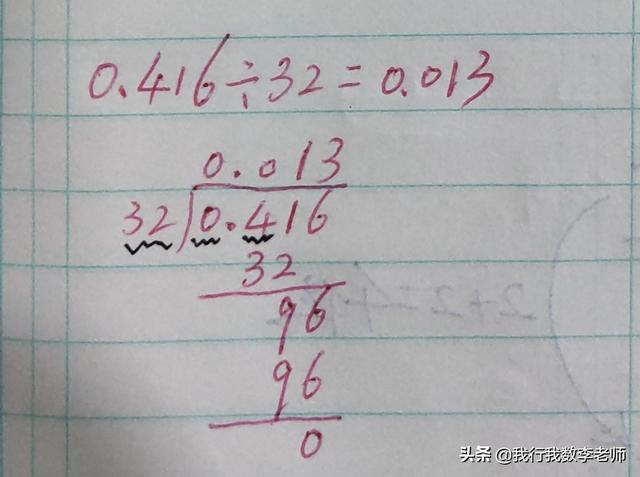 0.416÷32=0.013
0.013
32)0.416
32
2+2=4
96
96
0
头条 @我行我数李老师